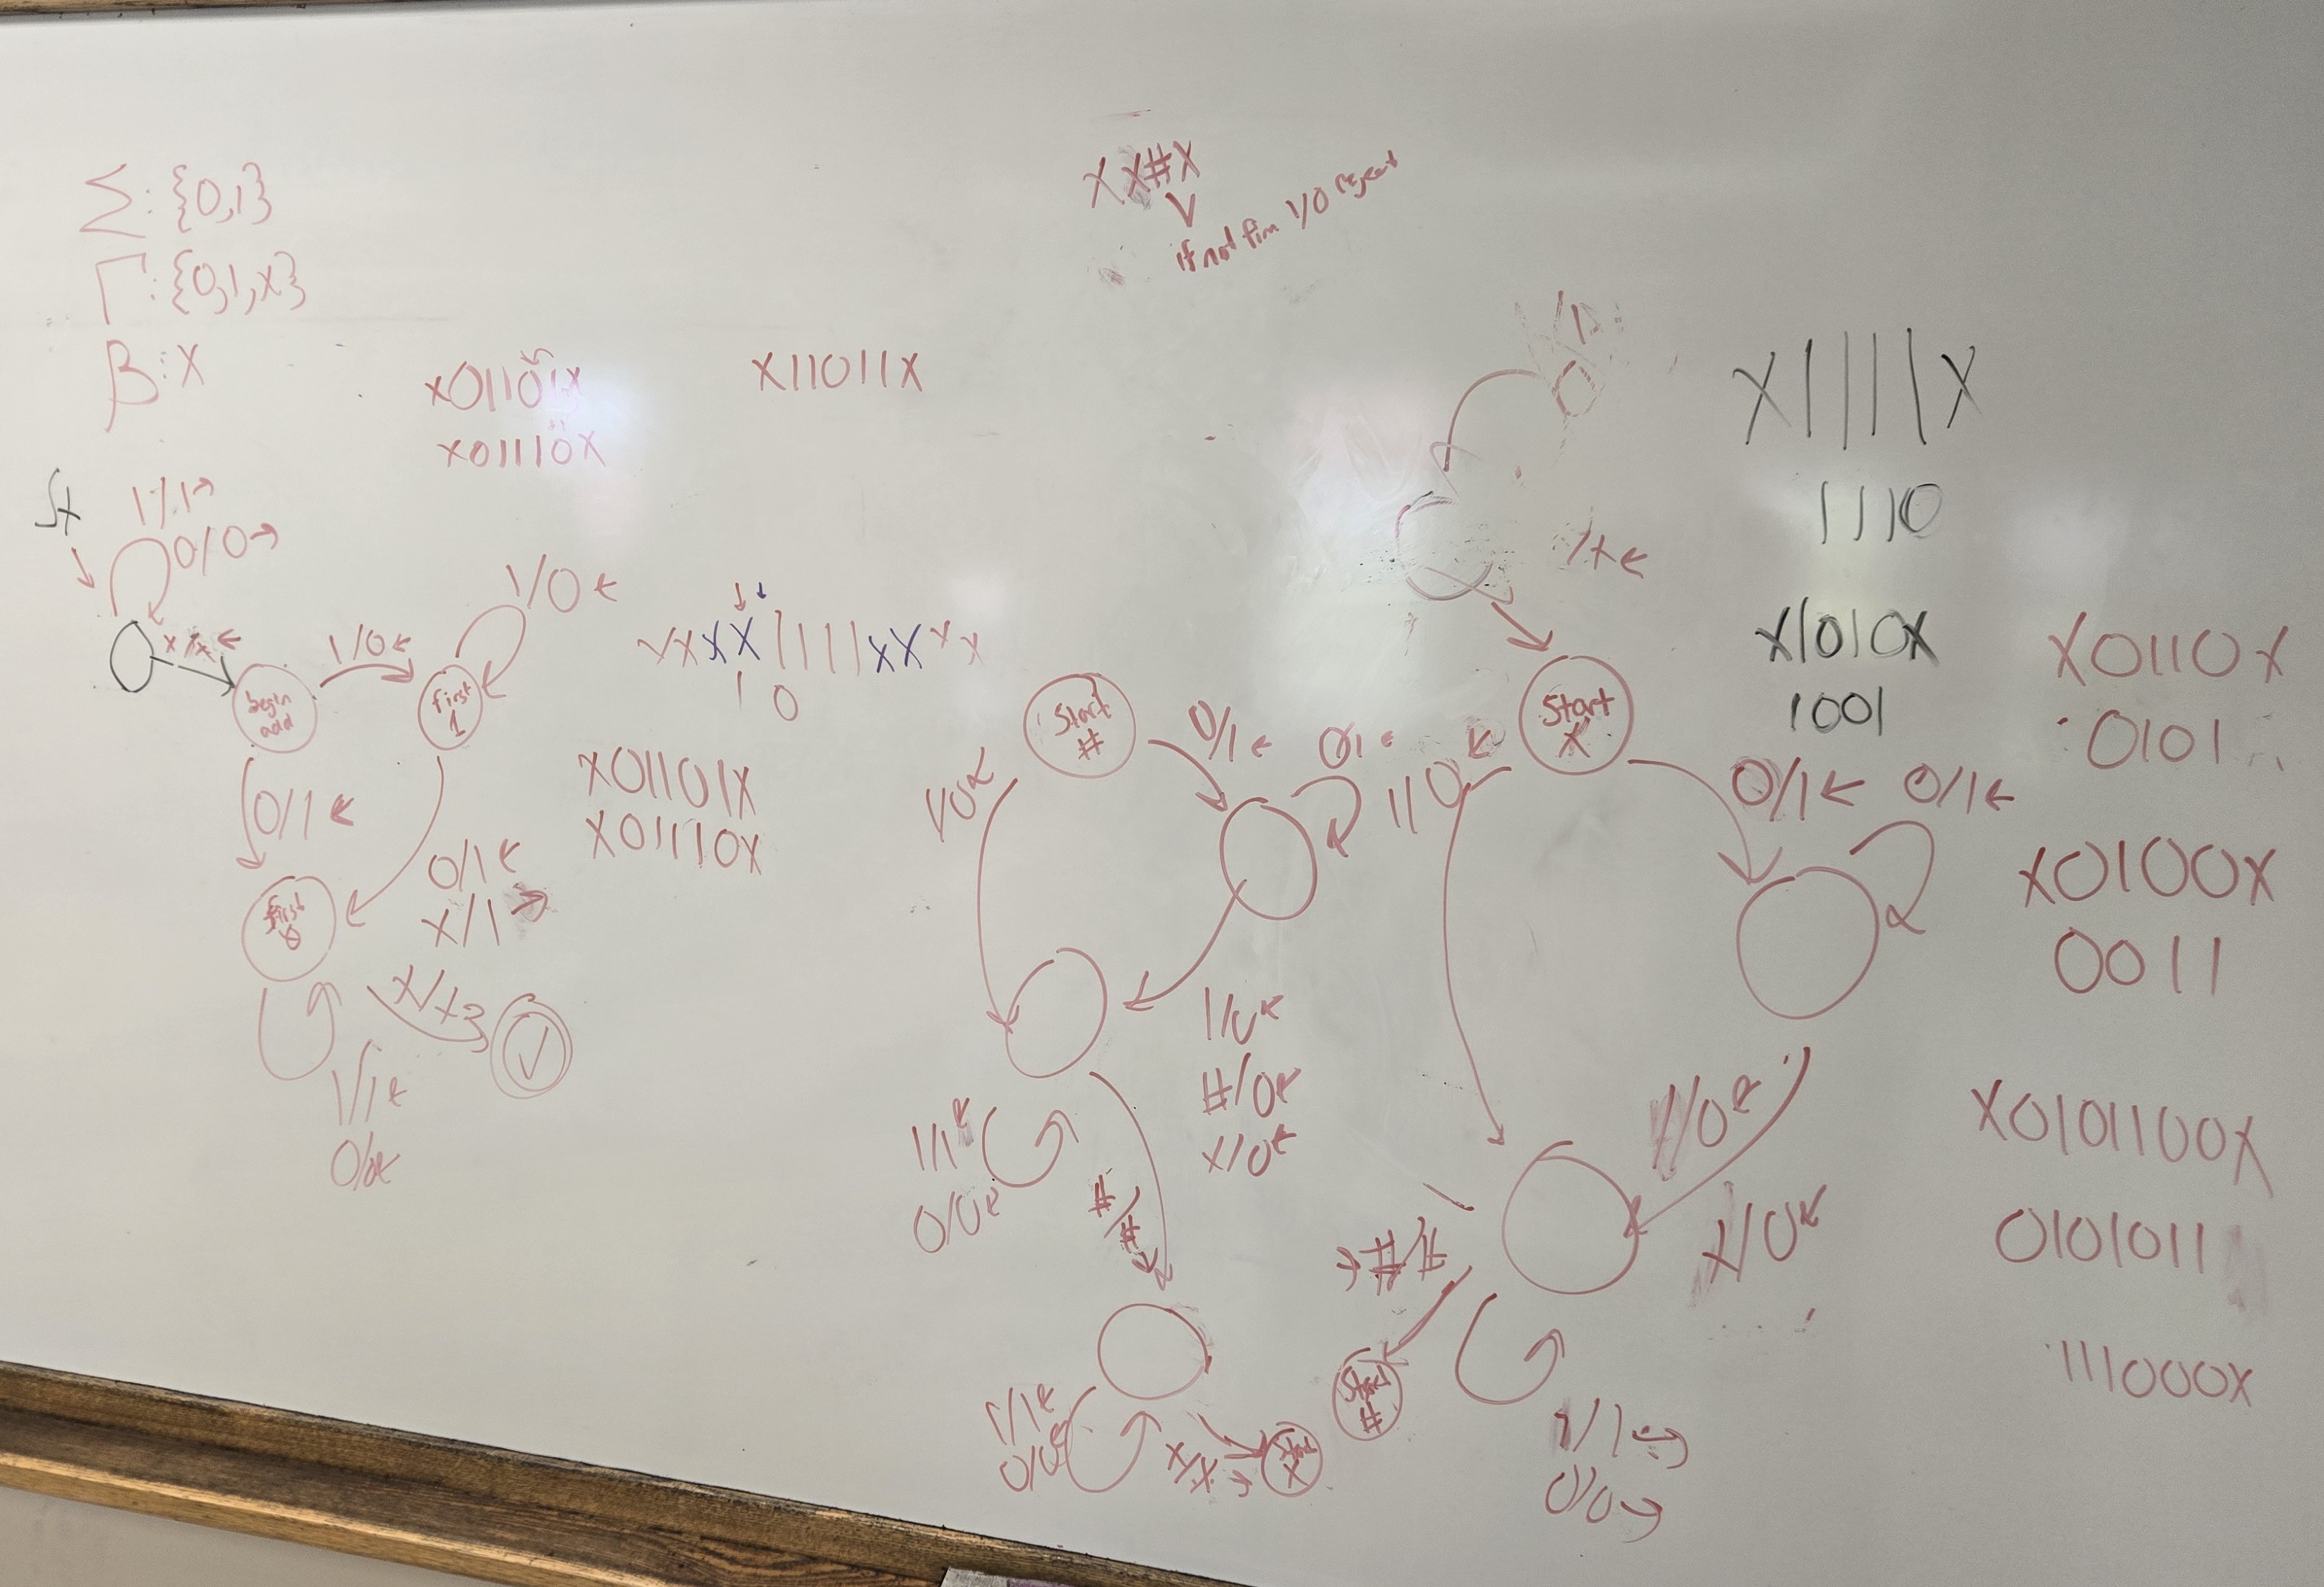 Σ: {0,1}
Γ: {0,1,x}
β: X
x01101x
x01110x
X11011X
XX#X
if not fim 1/0 reject
St
1/1→
0/0→
x/x←
begin add
1/0←
first 1
1/0←
0/1←
first 0
0/1←
x/1→
1/1←
✓
xxxX1111xXxx
1 0
X01101X
X01110X
Start #
1/0←
0/1←
1/0←
#/0←
x/0←
1/1←
0/0←
#/#←
1/1←
0/0←
x/x→
Start X
/x←
Start X
1/0←
0/1←
0/1←
1/0←
x/0←
#/#→
Start #
1/1→
0/0→
X1111X
1110
x1010x
1001
X0110X
0101
x0100x
0011
X0101100X
0101011
111000x